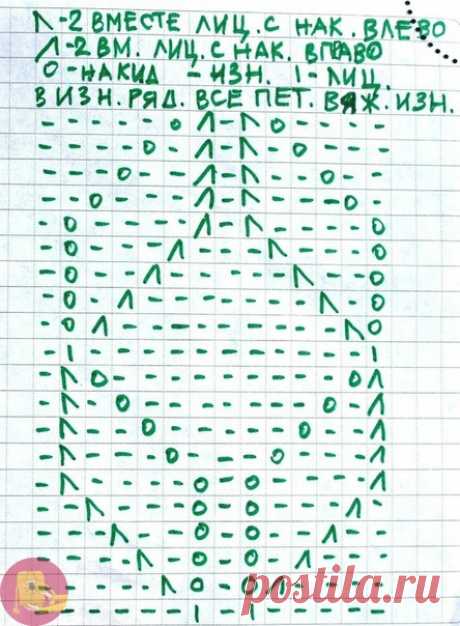 Λ-2 ВМЕСТЕ ЛИЦ. С НАК. ВЛЕВО
Λ-2 ВМ. ЛИЦ. С НАК. ВПРАВО
О-НАКИД - ИЗН. I-ЛИЦ.
В ИЗН. РЯД. ВСЕ ПЕТ. ВЯЖ. ИЗН.
postila.ru